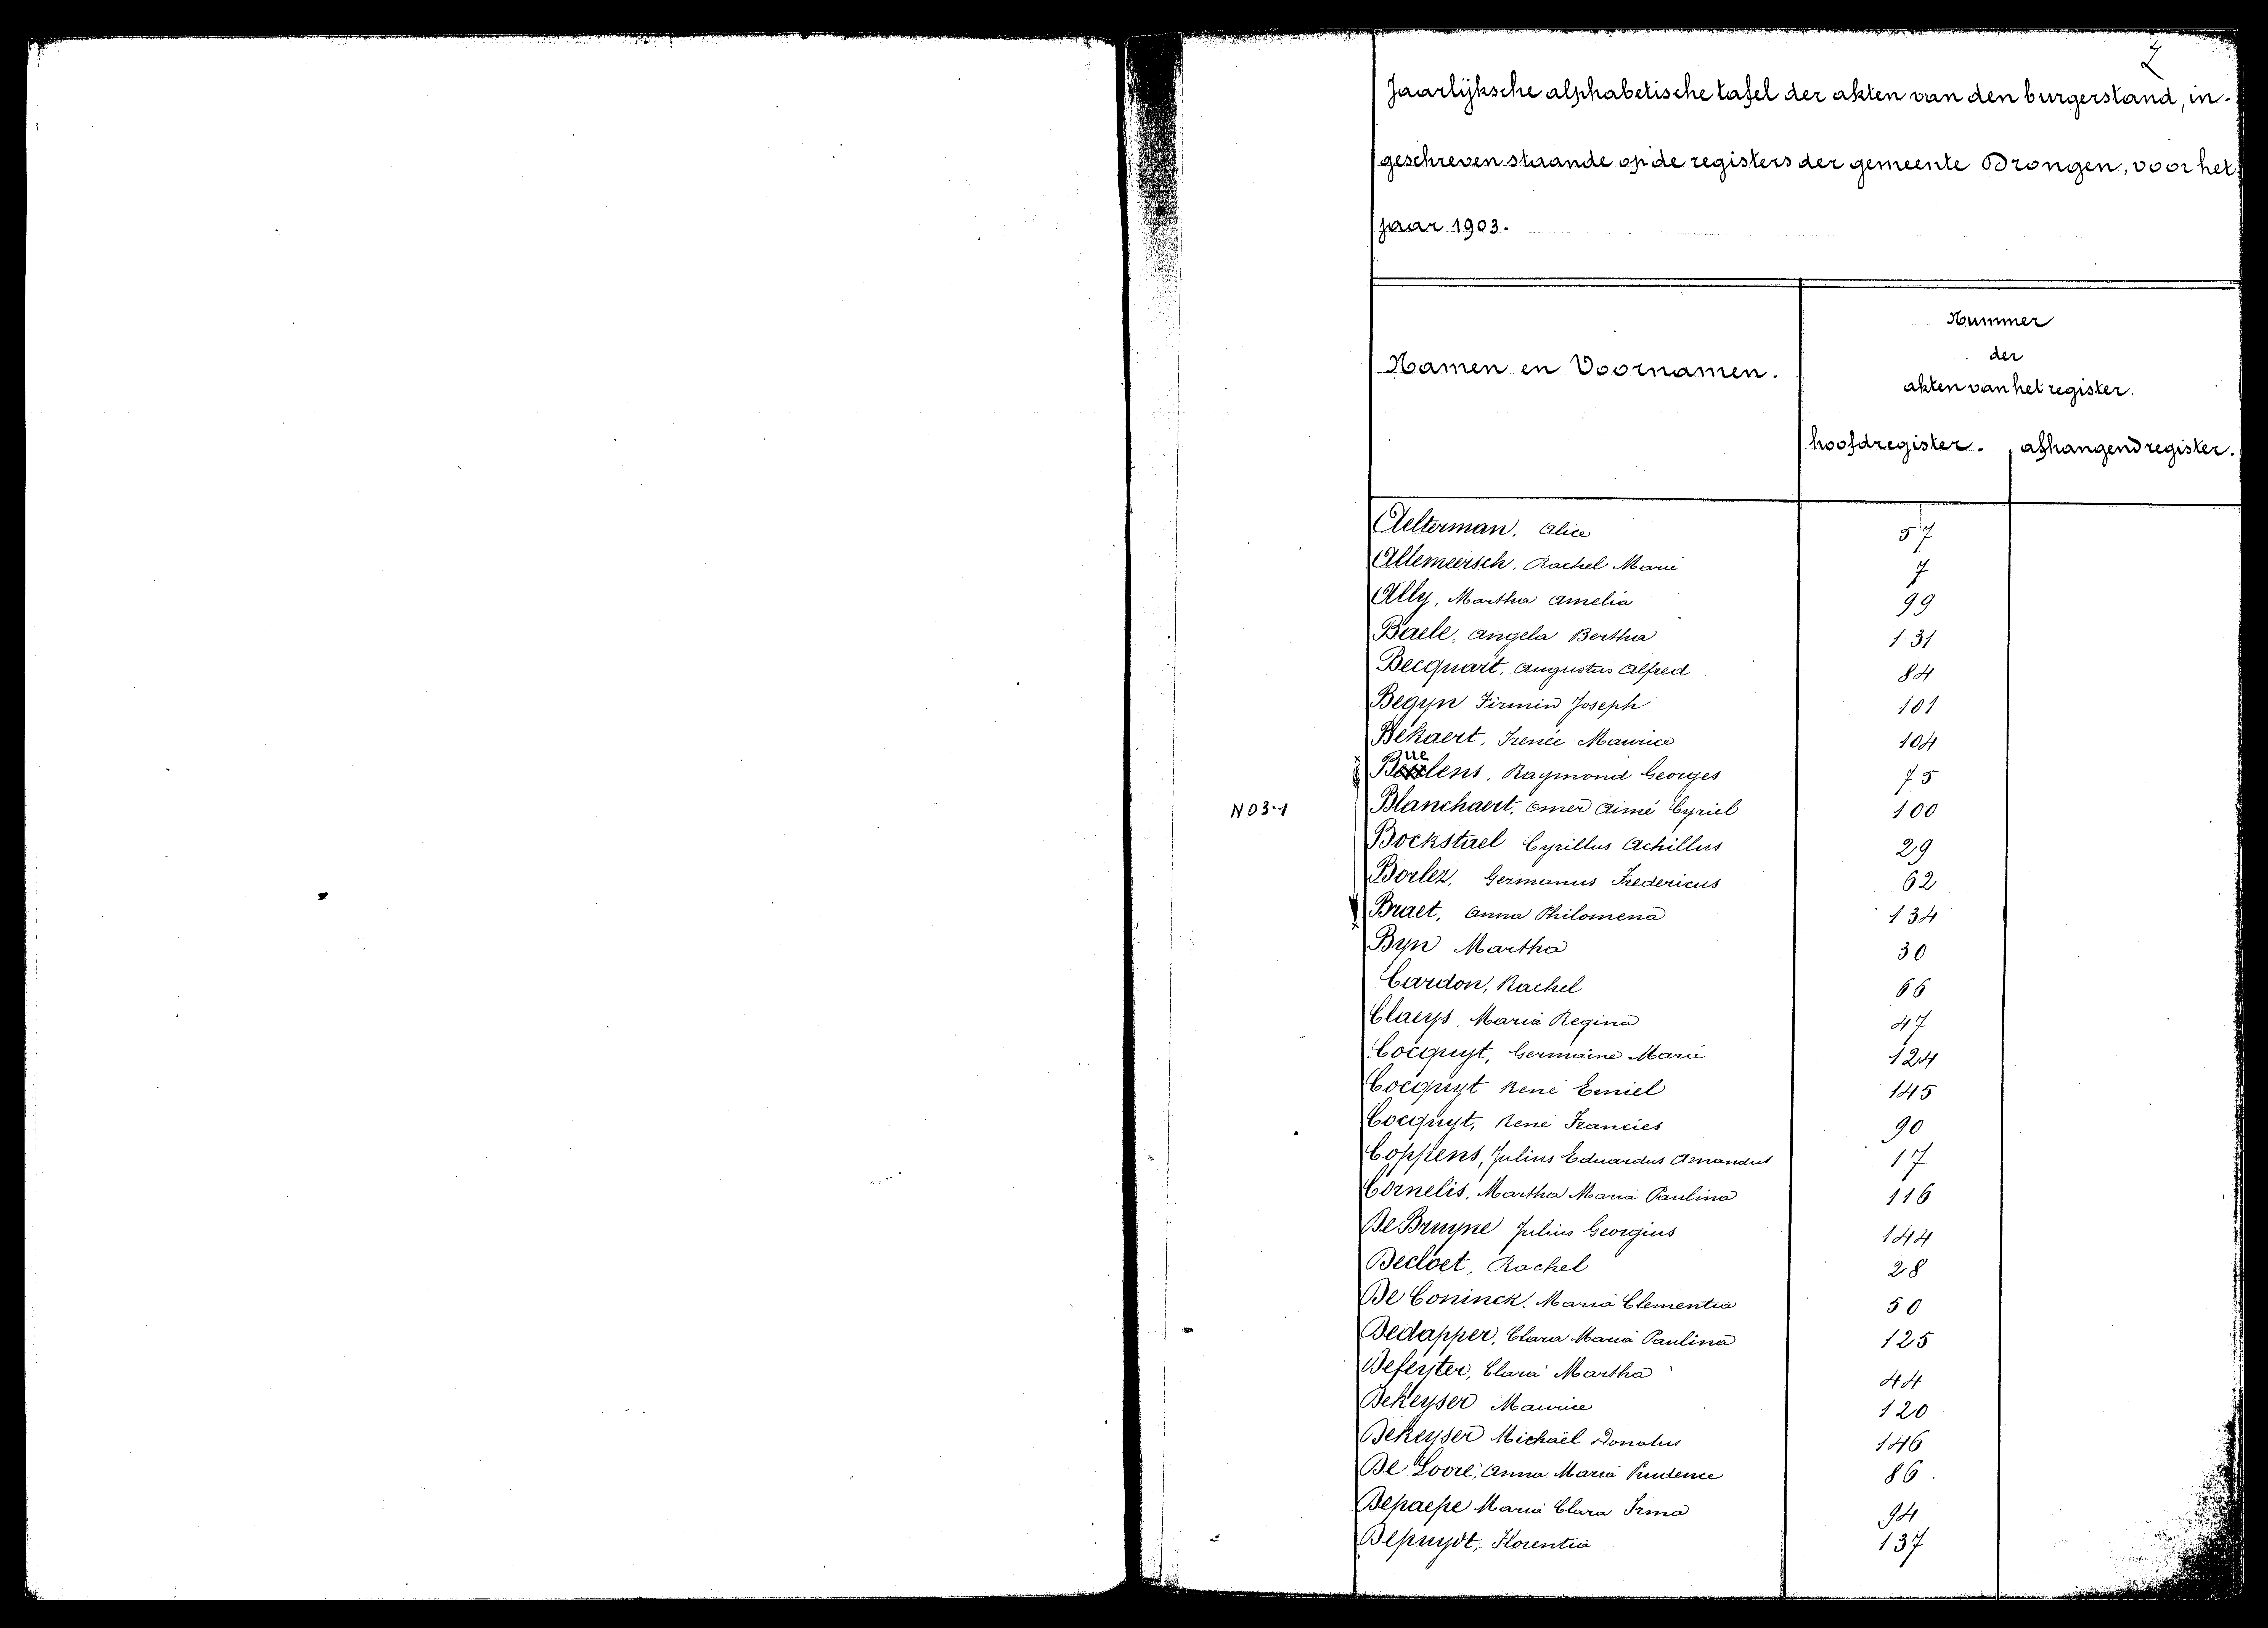 2
Jaarlijksche alphabetische tafel der akten van den burgerstand, in-
geschreven staande op de registers der gemeente Drongen, voor het
jaar 1903.
Namen en Voornamen.
Nummer
der
akten van het register.
hoofdregister. afhangend register.
Aelterman, Alice 57
Allemeersch, Rachel Marie 7
Ally, Martha Amelia 99
Baele, Angela Bertha 131
Becquart, Augustus Alfred 84
Begyn Firmin Joseph 101
Bekaert, Irenée Maurice 104
Buelens, Raymond Georges 75
N03-1
Blanchaert, Omer Aimé Cyriel 100
Bockstael Cyrillus Achillus 29
Borlez, Germanus Fredericus 62
Braet, Anna Philomena 134
Byn Martha 30
Cardon, Rachel 66
Claeys, Maria Regina 47
Cocquyt, Germaine Marie 124
Cocquyt René Emiel 145
Cocquyt, René Francies 90
Coppens, Julius Eduardus Amandus 17
Cornelis, Martha Maria Paulina 116
De Bruyne Julius Georgius 144
Decloet, Rachel 28
De Coninck, Maria Clementia 50
Dedapper, Clara Maria Paulina 125
Defeyter, Clara Martha 44
Dekeyser Maurice 120
Dekeyser Michaël Donatus 146
De Loore, Anna Maria Prudence 86
Depaepe Maria Clara Irma 94
Depuydt, Florentia 137